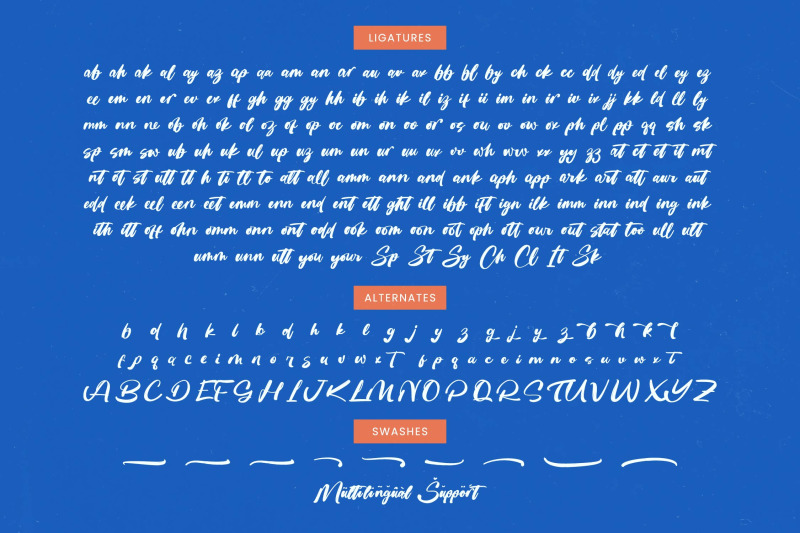 LIGATURES
ab ah ak al ay az ap aa am an ar au av ax bb bl by ch ck cc dd dy ed el ey ez
ec em en er ev ex ff gh gg gy hh ib ih ik il iz if ii im in ir iv ix jj kk ld ll ly
mm nn ne ob oh ok ol oz of op oc om on oo or os ou ov ow ox ph pl pp qq sh sk
sp sm sw ub uh uk ul up uz um un ur uu ux vv wh wrv xx yy zz at ct et it mt
nt ot st utt tl h ti tt to att all amm ann and ank aph app ark art att awr aut
edd eek eel een eet emm enn end ent ett ght ill ibb ift ign ilk imm inn ind ing ink
ith itt off ohn omm onn ont odd ook oom oon oot oph ott our out stat too ull utt
umm unn utt you your Sp St Sy Ch Cl It Sk
ALTERNATES
b d h k l b d h k l g j y z g j y z b h k l
f p q a c e i m n o r s u v w x T f p q a c e i m n o s u v w x T
A B C D E F G H I J K L M N O P Q R S T U V W X Y Z
SWASHES
Multilingual Support